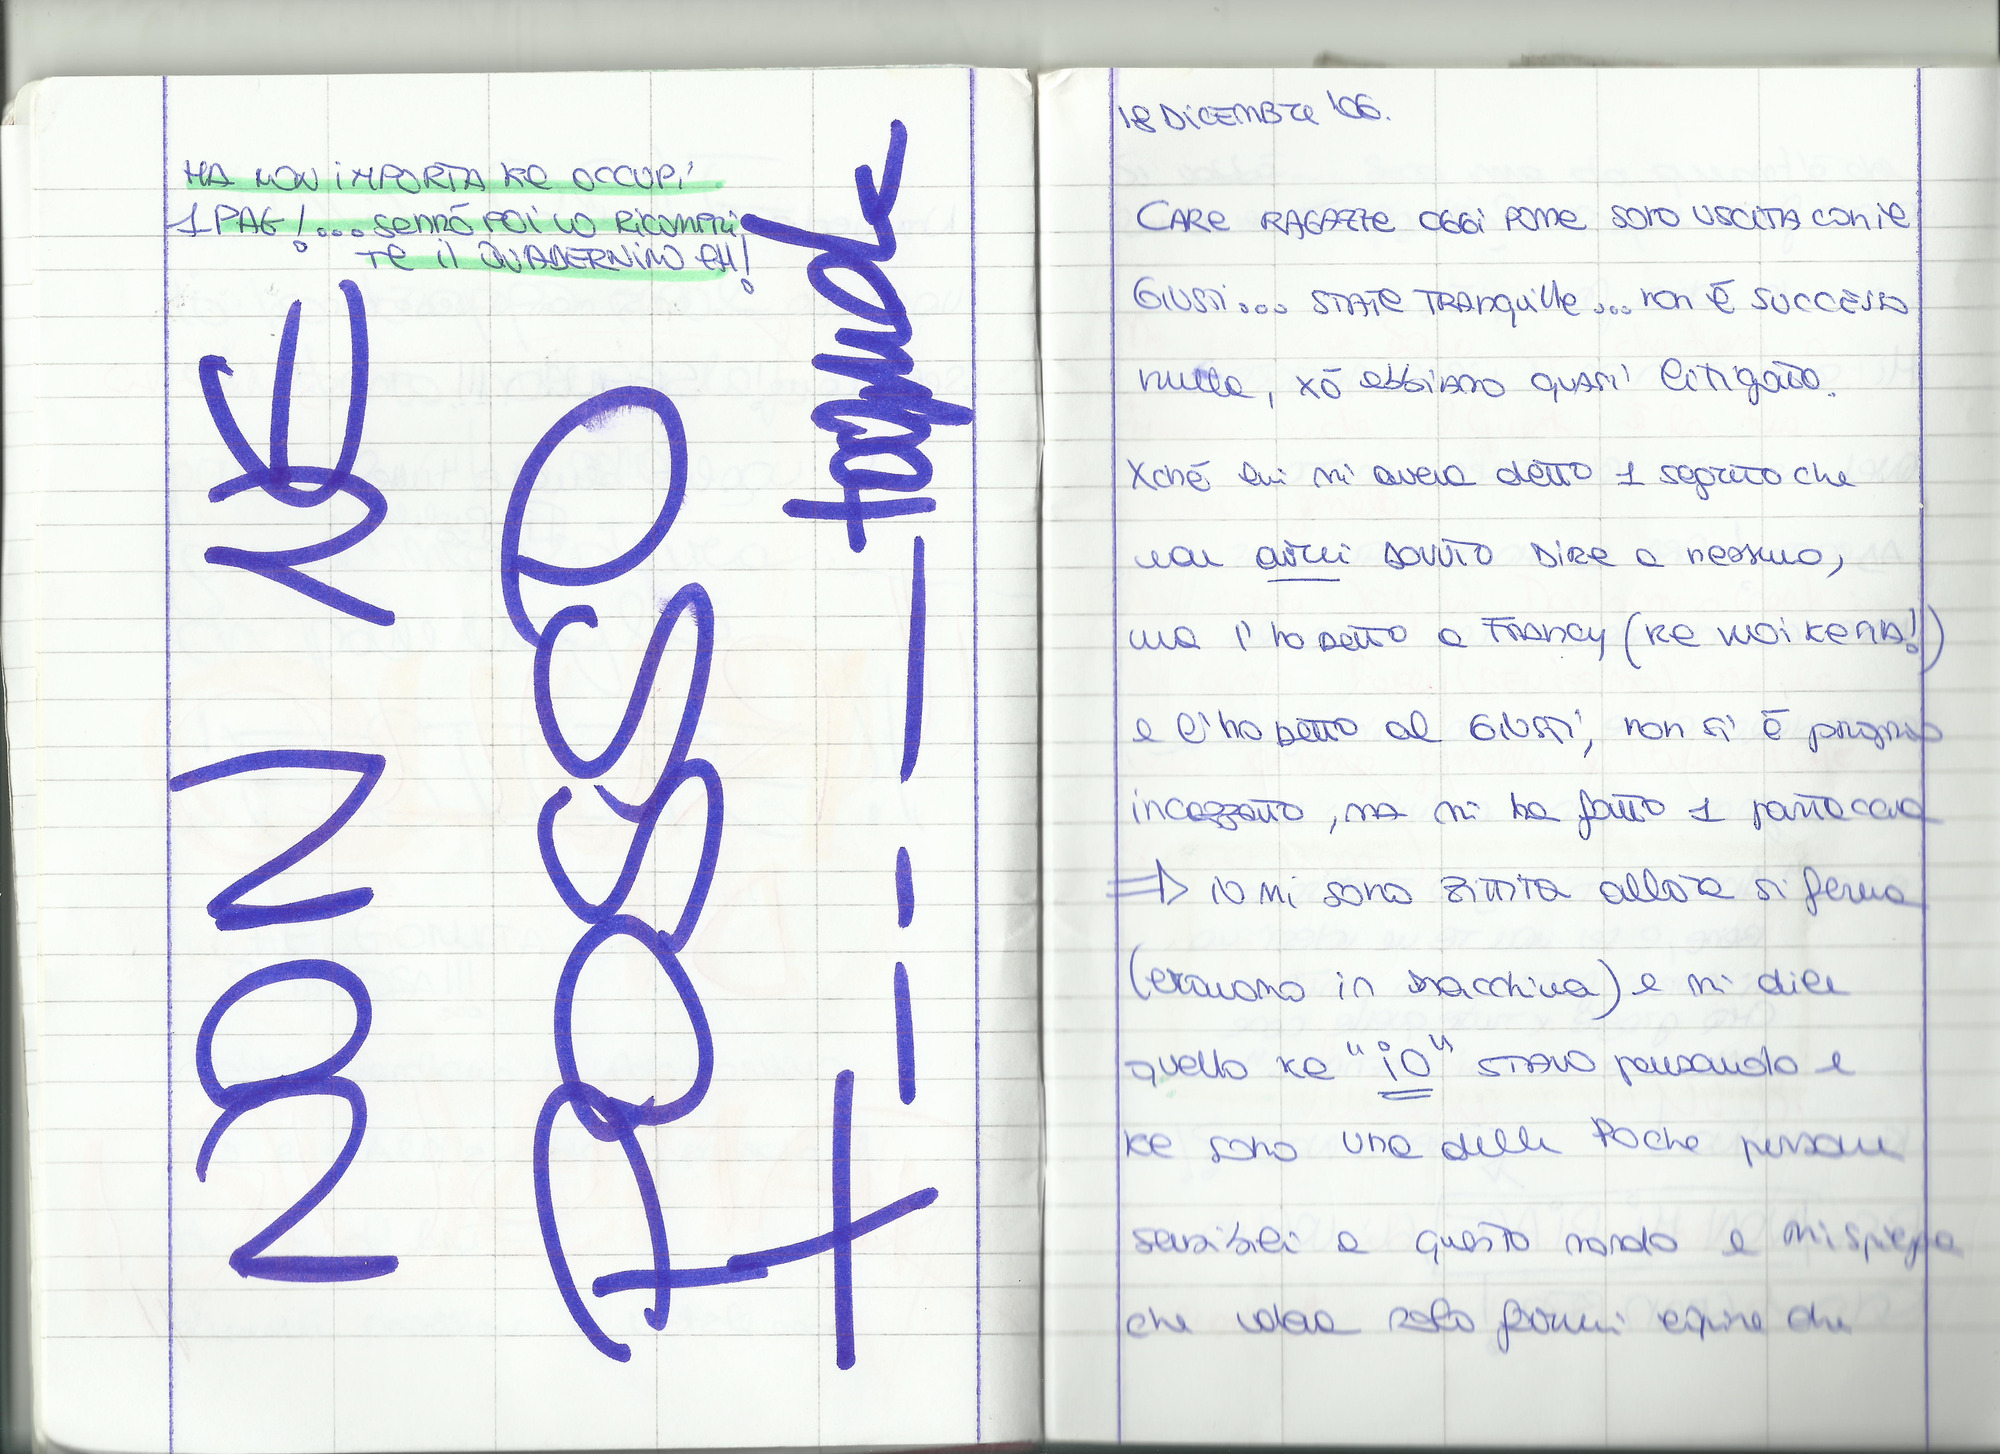 MA NON iMPORTA Ke OCCUPi
1 PAG!... sennò poi Lo Ricompri
Te il QUADERNiNO eH!
NON NE
POSSO
+ _ _ _
CARE RAGAZZE OGGi POME SONO USCiTA CON iL
18 DiCEMBRE '06.
GiUSTi... STATE TRANquille... non è SUCCESSO
nulla, xò abbiamo quasi litigato.
Xché lui mi aveva detto 1 segreto che
non avrei DOVUTO DiRE a nessuno,
ma l'ho detto a FRANCY (Ke
e l'ho detto al GiUSTi, non si è proprio
incazzato, ma mi ha fatto 1 partaccia
⇒ iO Mi sono ZiTTiTA allora si ferma
(eravamo in macchina) e mi dice
quello ke "iO" STAVO pensando e
ke sono una delle poche persone
sensibili a questo mondo e mi spiega
che voleva solo farmi capire che